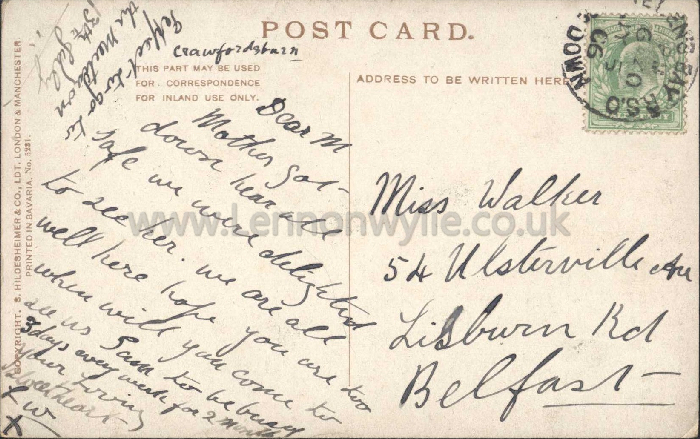 POST CARD.
Crawfordsburn
THIS PART MAY BE USED
FOR CORRESPONDENCE
FOR INLAND USE ONLY.
ADDRESS TO BE WRITTEN HERE
DOWN
JU 30
06
R.S.O
Dear M
Mother got
down hear all
safe we were delighted
to see her. we are all
well here hope you are two
when will you come to
see us Sam to be busy
3 days every week for 2 months
your loving
Sweetheart
W
X
to go to
the
13th July
Miss Walker
54 Ulsterville Av
Lisburn Rd
Belfast
www.Lennonwylie.co.uk
COPYRIGHT. S. HILDESHEIMER & CO., LDT. LONDON & MANCHESTER
PRINTED IN BAVARIA. No. 5231.